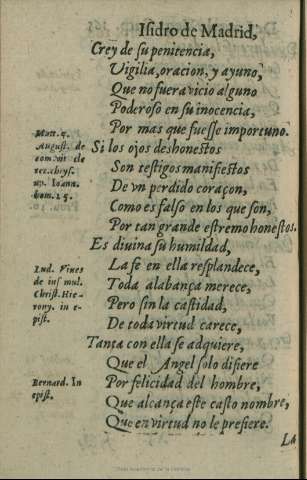 Isidro de Madrid,
Crey de su penitencia,
Vigilia, oracion, y ayuno,
Que no fuera vicio alguno
Poderoso en su inocencia,
Por mas que fuesse importuno.
Si los ojos deshonestos
Son testigos manifiestos
De vn perdido coraçon,
Como es falso en los que son,
Por tan grande estremo honestos.
Es diuina su humildad,
La fe en ella resplandece,
Toda alabança merece,
Pero sin la castidad,
De toda virtud carece,
Tanta con ella se adquiere,
Que el Angel solo difiere
Por felicidad del hombre,
Que alcança este casto nombre,
Que en virtud no le prefiere.
La
Matt. 5.
August. de
com. vit cle
ric. chrys.
up. Ioann.
hom. 15.
Lud. Viues
de inst mul.
Christ. Hie-
rony. in e-
pist.
Bernard. In
epist.